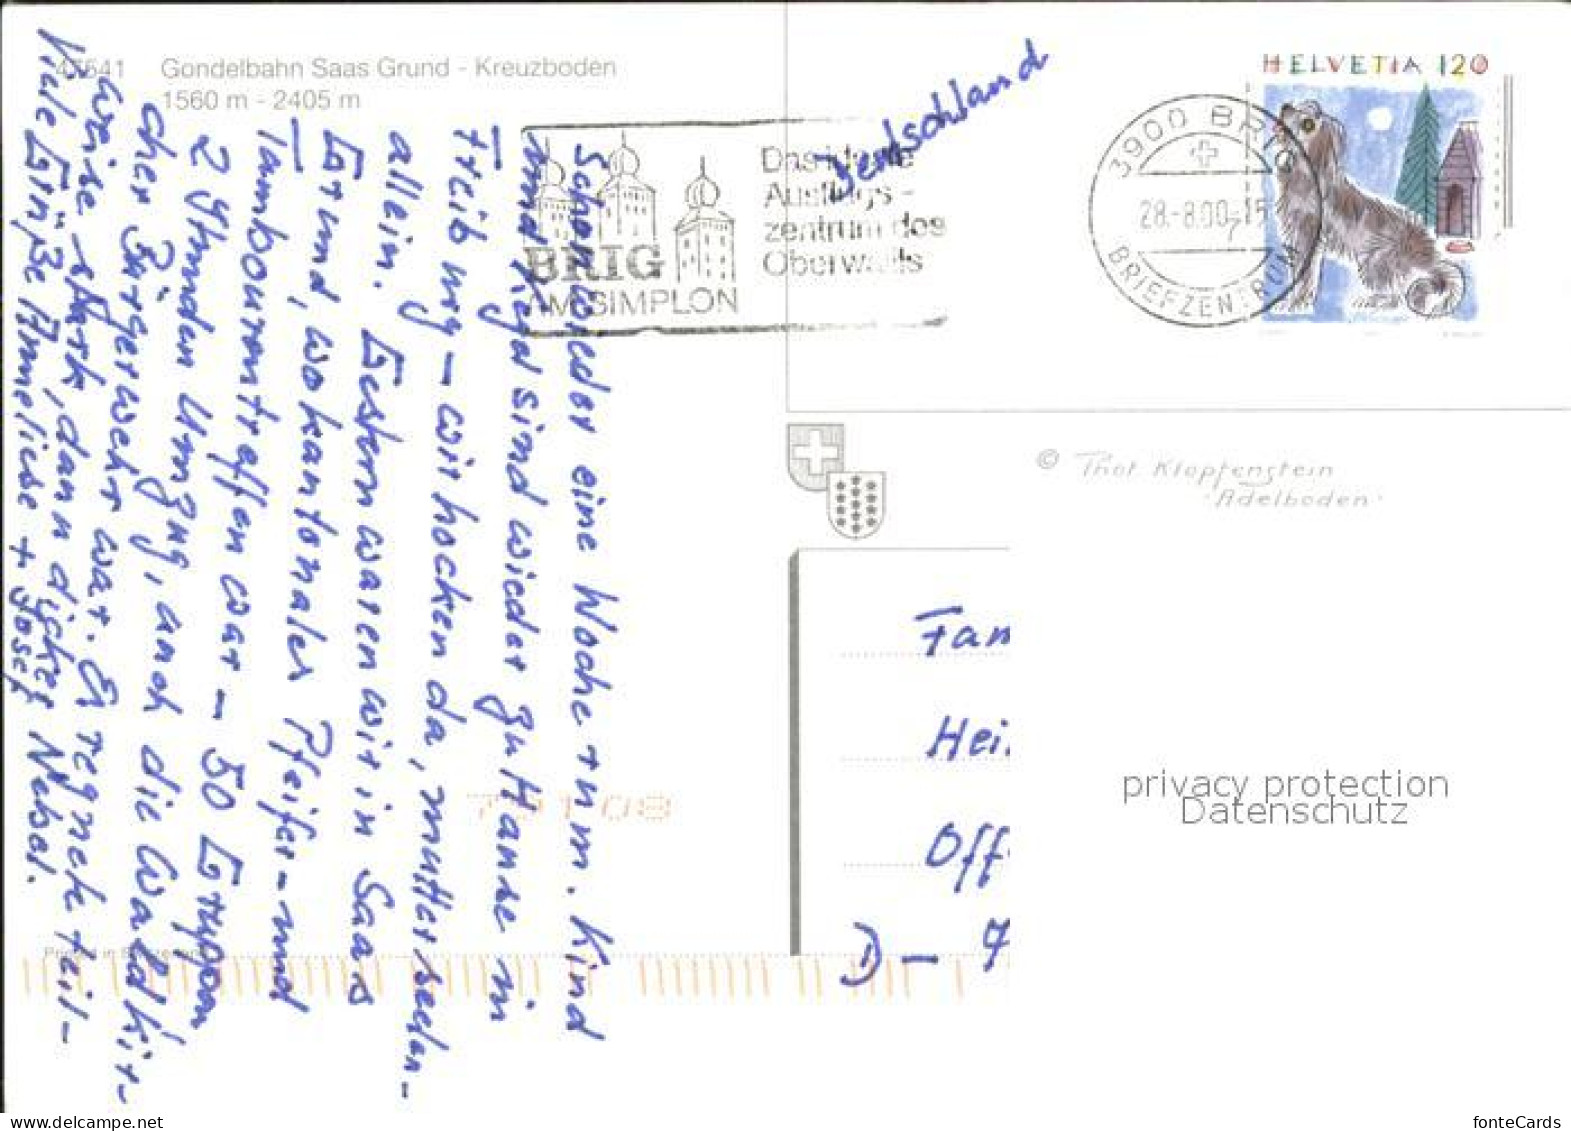 47541
Gondelbahn Saas Grund - Kreuzboden
1560 m - 2405 m
Schon wieder eine Woche rum. Kind
und Kegel sind wieder zu Hause in
Freib'rg - wir hocken da, mutterseelen-
allein. Gestern waren wir in Saas
Grund, wo kantonales Pfeifer- und
Tambourentreffen war - 50 Gruppen
2 Stunden Umzug, auch die Waldkir-
cher Bürgerwehr war. Es regnete teil-
weise stark, dann dicker Nebel.
Viele Grüße Anneliese + Josef
BRIG
AM SIMPLON
Das ideale
Ausflugs-
zentrum des
Oberwallis
Deutschland
3900 BRIG
28.-8.00-15
BRIEFZENTRUM
HELVETIA 120
© Thöt Klopfenstein
· Adelboden ·
Fam
Hei
Off
D - 7
privacy protection
Datenschutz
fonteCards